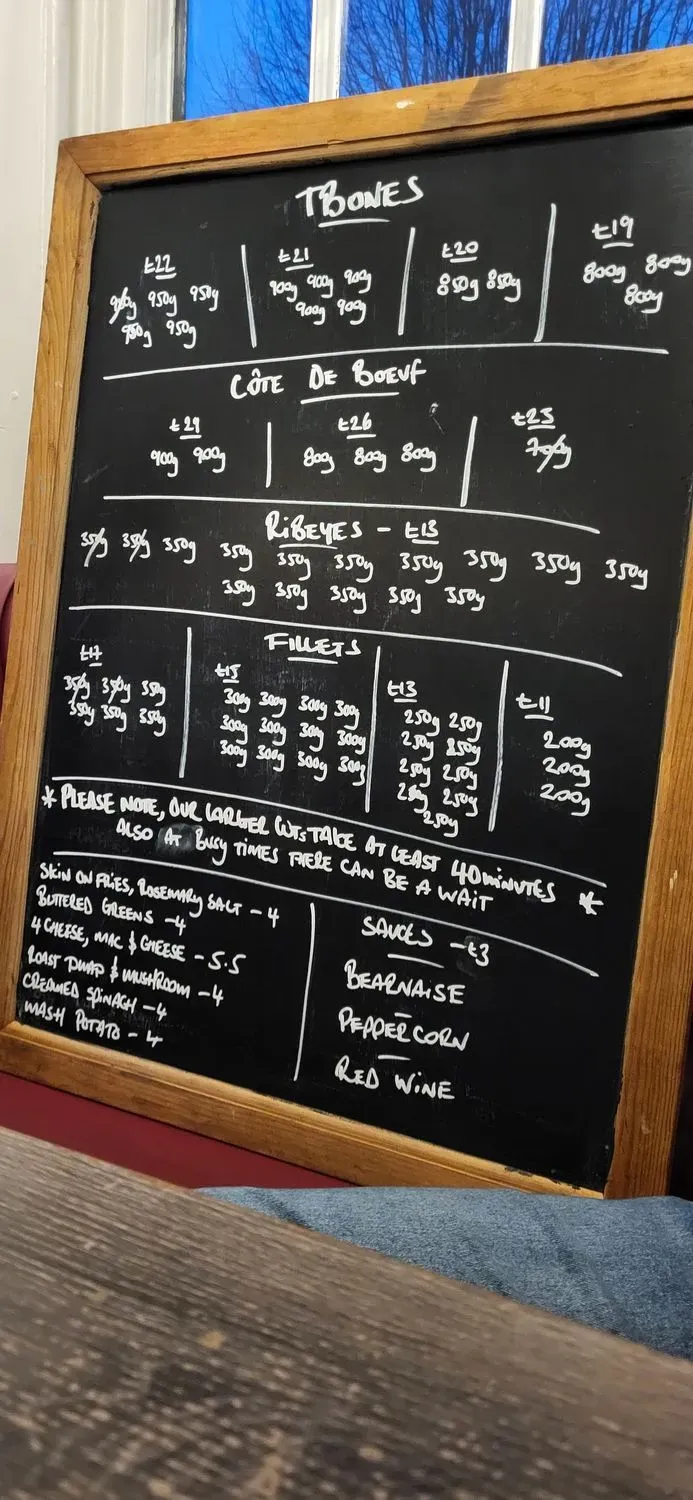 TBONES
£22
950g 950g 950g
950g 950g
£21
900g 900g 900g
900g 900g
£20
850g 850g
£19
800g 800g
800g
CÔTE DE BOEUF
£29
900g 900g
£26
800g 800g 800g
£25
700g
RIBEYES - £13
350g 350g 350g 350g 350g 350g 350g 350g 350g 350g
350g 350g 350g 350g 350g
FILLETS
£17
350g 350g 350g
350g 350g 350g
£15
300g 300g 300g 300g
300g 300g 300g 300g
300g 300g 300g 300g
£13
250g 250g
250g 250g
250g 250g
250g 250g
250g
£11
200g
200g
200g
* PLEASE NOTE, OUR LARGER CUTS TAKE AT LEAST 40 MINUTES *
ALSO AT BUSY TIMES THERE CAN BE A WAIT
SKIN ON FRIES, ROSEMARY SALT - 4
BUTTERED GREENS - 4
4 CHEESE, MAC & CHEESE - 5.5
ROAST & MUSHROOM - 4
CREAMED SPINACH - 4
MASH POTATO - 4
SAUCES - £3
BEARNAISE
PEPPERCORN
RED WINE